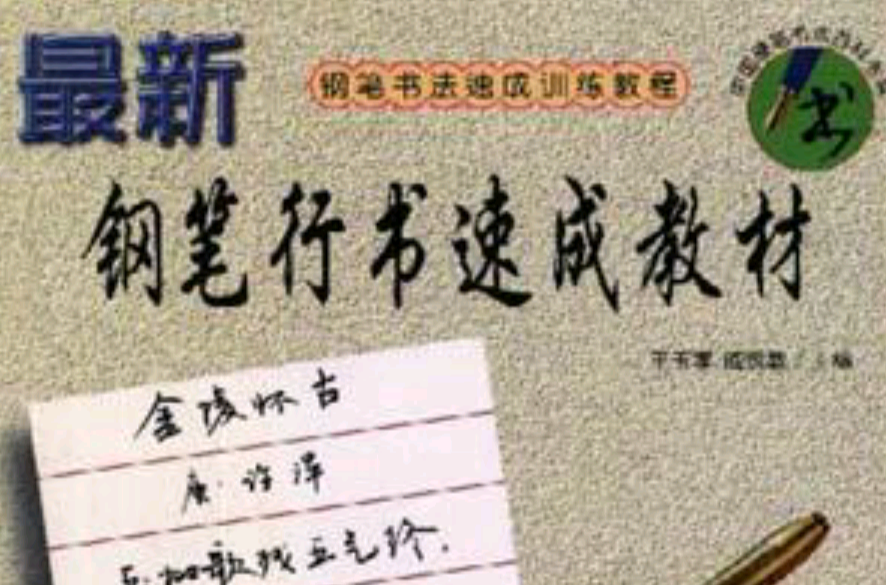 最新
钢笔书法速成训练教程
书
钢笔行书速成教材
金陵怀古
唐·许浑
玉树歌残王气终,